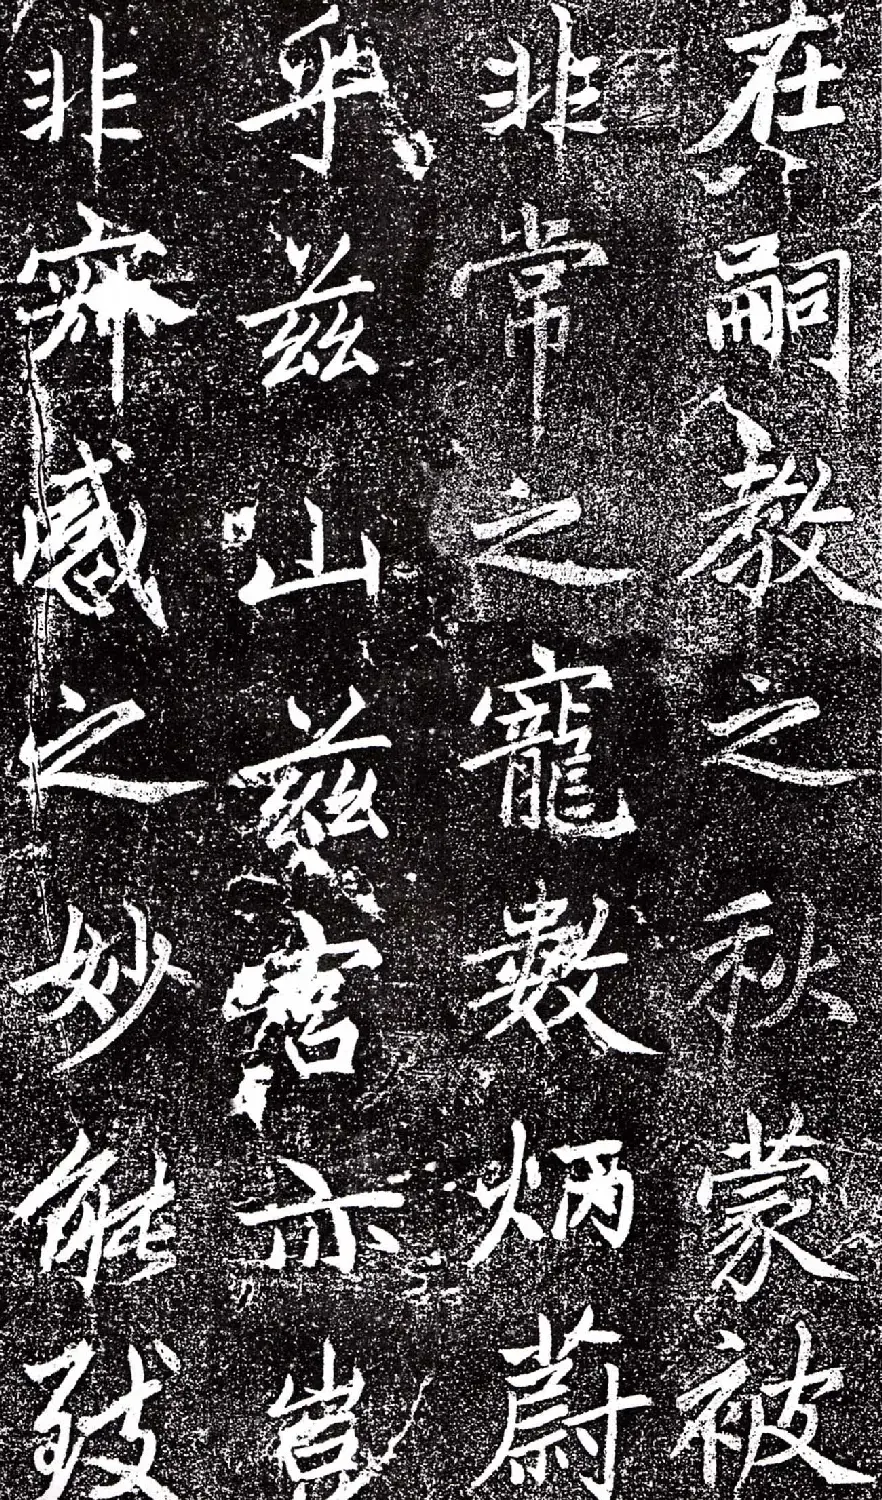 在嗣教之秋蒙被
非常之寵數炳蔚
乎茲山茲宫亦豈
非齊感之妙能致